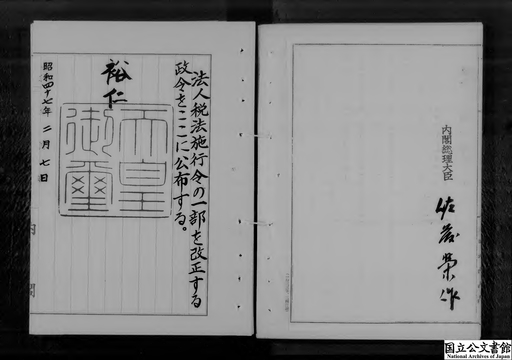 法人税法施行令の一部を改正する
政令をここに公布する。
裕仁
天皇
御璽
昭和四十七年二月七日
内閣総理大臣
佐藤榮作
国立公文書館
National Archives of Japan